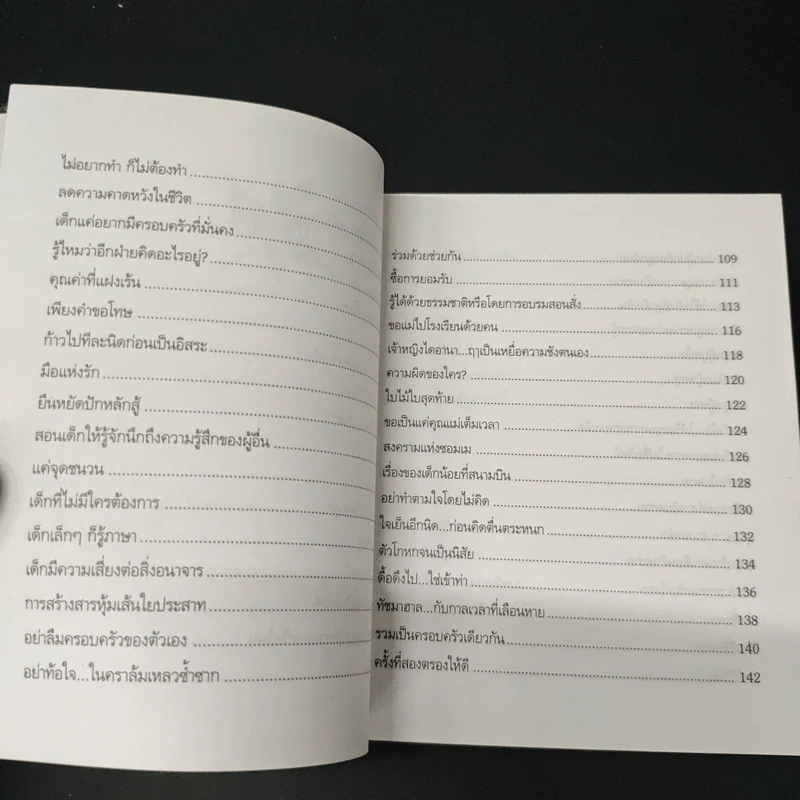 ไม่อยากทำ ก็ไม่ต้องทำ
ลดความคาดหวังในชีวิต
เด็กแค่อยากมีครอบครัวที่มั่นคง
รู้ไหมว่าอีกฝ่ายคิดอะไรอยู่?
คุณค่าที่แฝงเร้น
เพียงคำขอโทษ
ก้าวไปทีละนิดก่อนเป็นอิสระ
มือแห่งรัก
ยืนหยัดปักหลักสู้
สอนเด็กให้รู้จักนึกถึงความรู้สึกของผู้อื่น
แค่จุดชนวน
เด็กที่ไม่มีใครต้องการ
เด็กเล็กๆ ก็รู้ภาษา
เด็กมีความเสี่ยงต่อสิ่งอนาจาร
การสร้างสารหุ้มเส้นใยประสาท
อย่าลืมครอบครัวของตัวเอง
อย่าท้อใจ...ในคราล้มเหลวซ้ำซาก
ร่วมด้วยช่วยกัน 109
ซื้อการยอมรับ 111
รู้ได้ด้วยธรรมชาติหรือโดยการอบรมสอนสั่ง 113
ขอแม่ไปโรงเรียนด้วยคน 116
เจ้าหญิงไดอานา...ฤๅเป็นเหยื่อความชังตนเอง 118
ความผิดของใคร? 120
ใบไม้ใบสุดท้าย 122
ขอเป็นแค่คุณแม่เต็มเวลา 124
สงครามแห่งซอมเม 126
เรื่องของเด็กน้อยที่สนามบิน 128
อย่าทำตามใจโดยไม่คิด 130
ใจเย็นอีกนิด...ก่อนคิดตื่นตระหนก 132
ตัวโกหกจนเป็นนิสัย 134
ดื้อดึงไป...ใช่เข้าท่า 136
ทัชมาฮาล...กับกาลเวลาที่เลือนหาย 138
รวมเป็นครอบครัวเดียวกัน 140
ครั้งที่สองตรองให้ดี 142